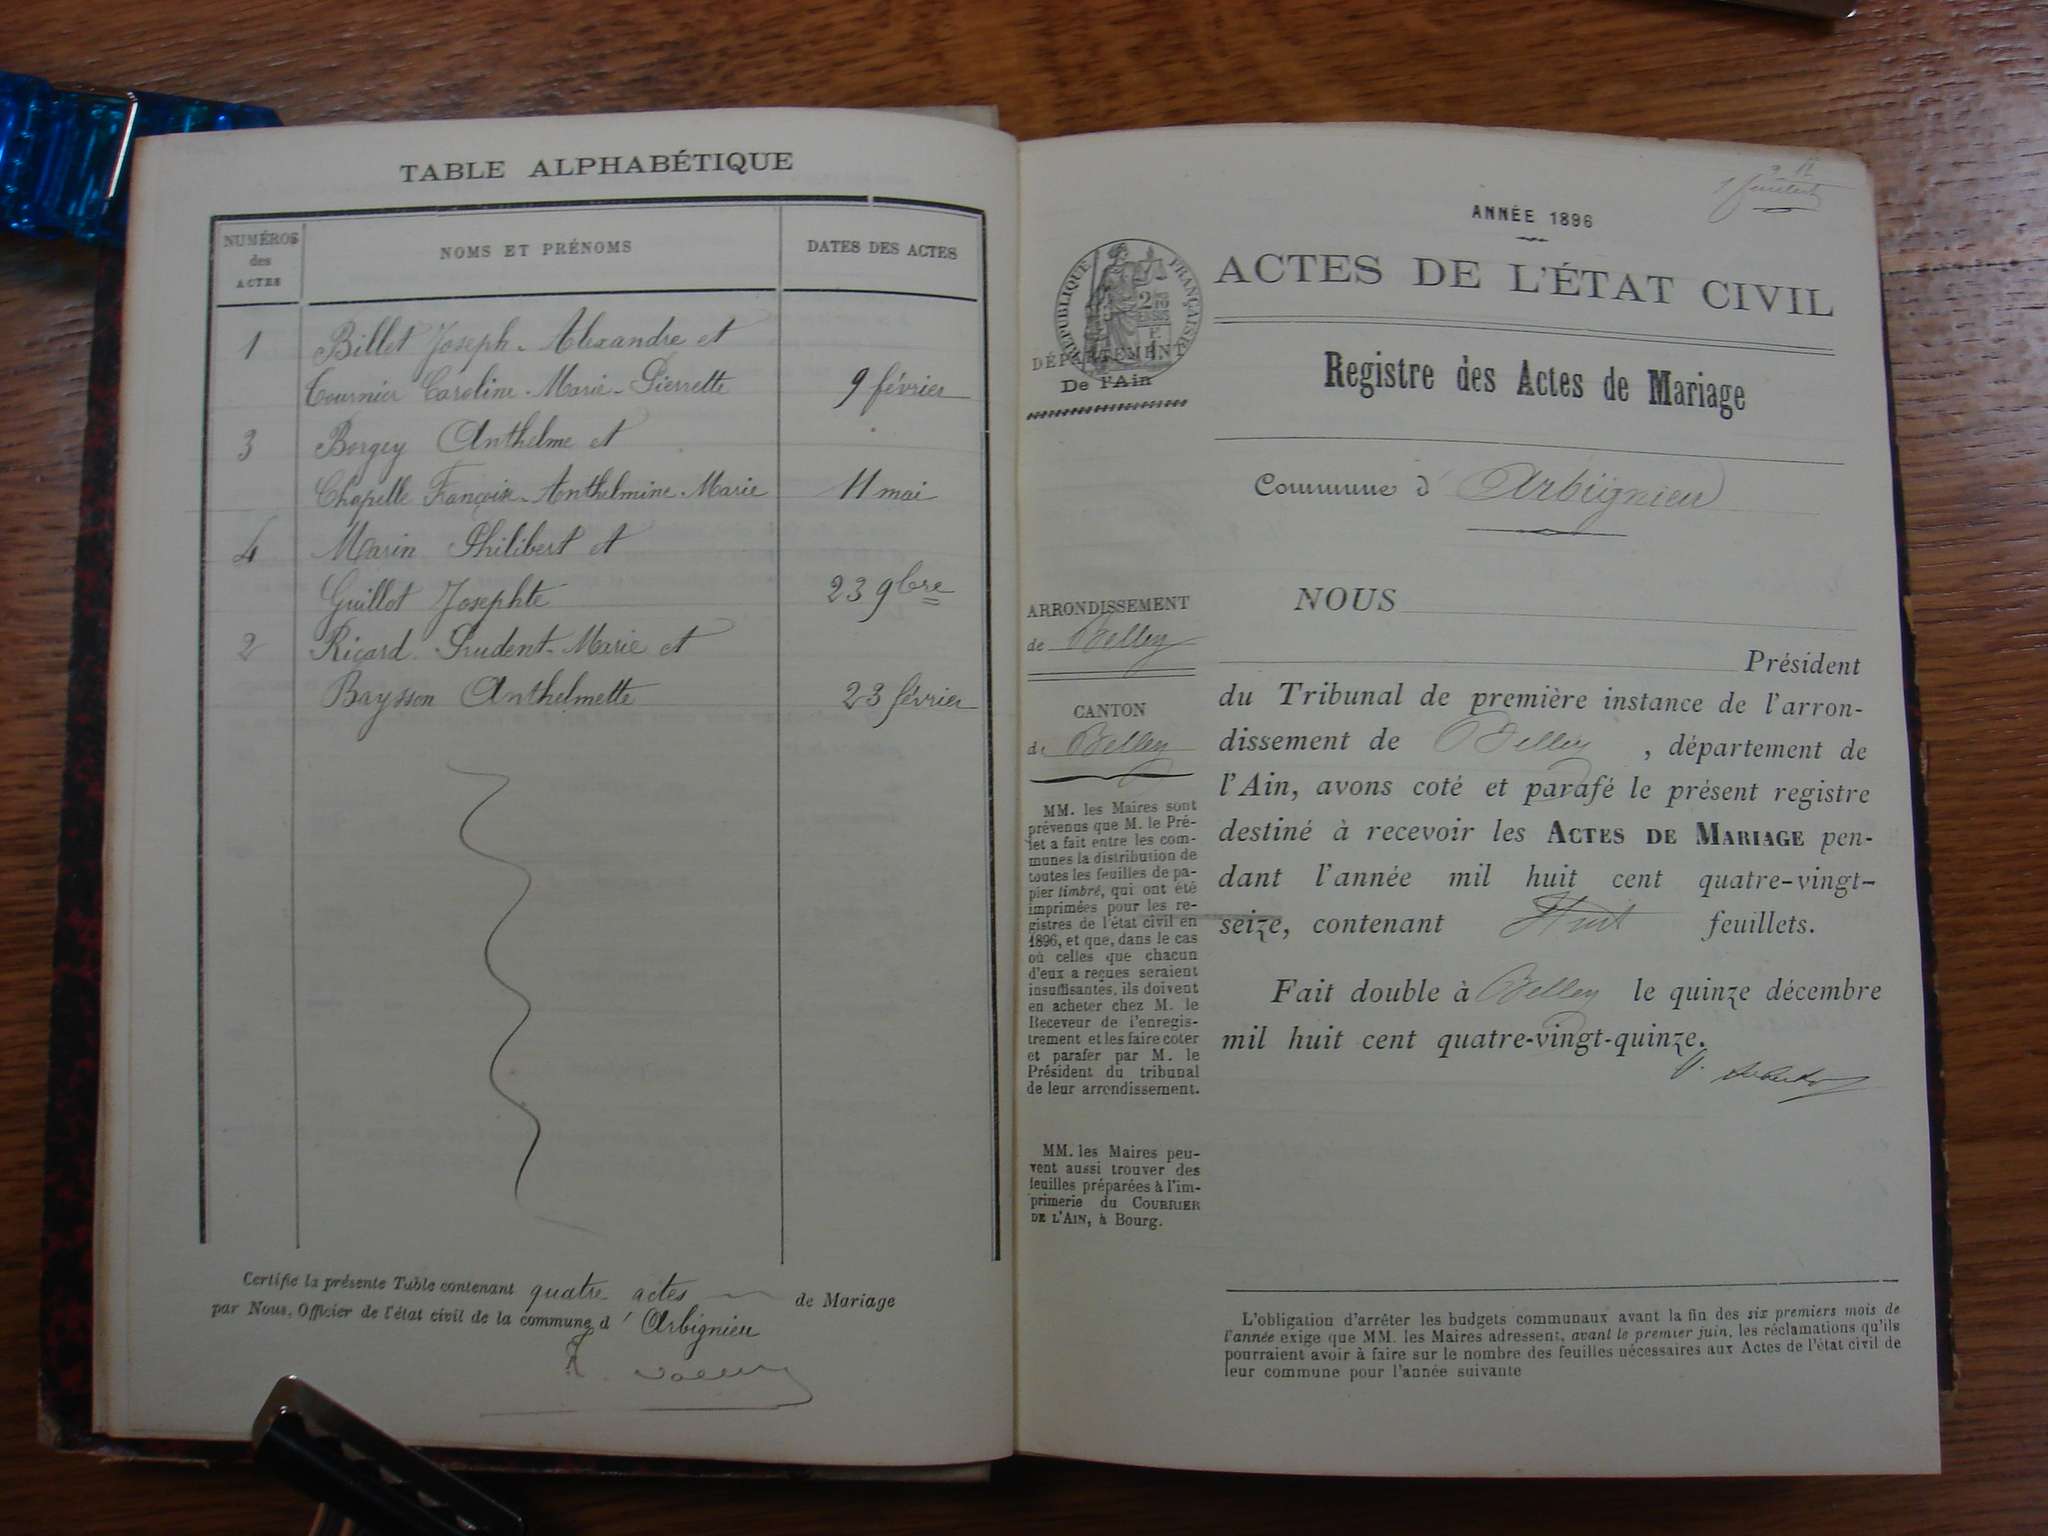 TABLE ALPHABÉTIQUE
NUMÉROS des ACTES
NOMS ET PRÉNOMS
DATES DES ACTES
1 Billet Joseph-Alexandre et
Tournier Caroline-Marie-Pierrette 9 février
3 Borgey Anthelme et
Chapelle Françoise-Anthelmine-Marie 11 mai
4 Marin Philibert et
Guillot Josephte 23 9bre
2 Ricard Prudent-Marie et
Brysson Anthelmette 23 février
Certifié la présente Table contenant quatre actes de Mariage
par Nous, Officier de l'état civil de la commune d' Arbignieu
1 feuillet
ANNÉE 1896
RÉPUBLIQUE FRANÇAISE
ACTES DE L'ÉTAT CIVIL
DÉPARTEMENT
De l'Ain
Registre des Actes de Mariage
Commune d' Arbignieu
ARRONDISSEMENT
de Belley
CANTON
de Belley
MM. les Maires sont
prévenus que M. le Pré-
fet a fait entre les com-
munes la distribution de
toutes les feuilles de pa-
pier timbré, qui ont été
imprimées pour les re-
gistres de l'état civil en
1896, et que, dans le cas
où celles que chacun
d'eux a reçues seraient
insuffisantes, ils doivent
en acheter chez M. le
Receveur de l'enregis-
trement et les faire coter
et parafer par M. le
Président du tribunal
de leur arrondissement.
MM. les Maires peu-
vent aussi trouver des
feuilles préparées à l'im-
primerie du COURRIER
DE L'AIN, à Bourg.
NOUS
Président
du Tribunal de première instance de l'arron-
dissement de Belley, département de
l'Ain, avons coté et parafé le présent registre
destiné à recevoir les ACTES DE MARIAGE pen-
dant l'année mil huit cent quatre-vingt-
seize, contenant Huit feuillets.
Fait double à Belley le quinze décembre
mil huit cent quatre-vingt-quinze.
L'obligation d'arrêter les budgets communaux avant la fin des six premiers mois de
l'année exige que MM. les Maires adressent, avant le premier juin, les réclamations qu'ils
pourraient avoir à faire sur le nombre des feuilles nécessaires aux Actes de l'état civil de
leur commune pour l'année suivante